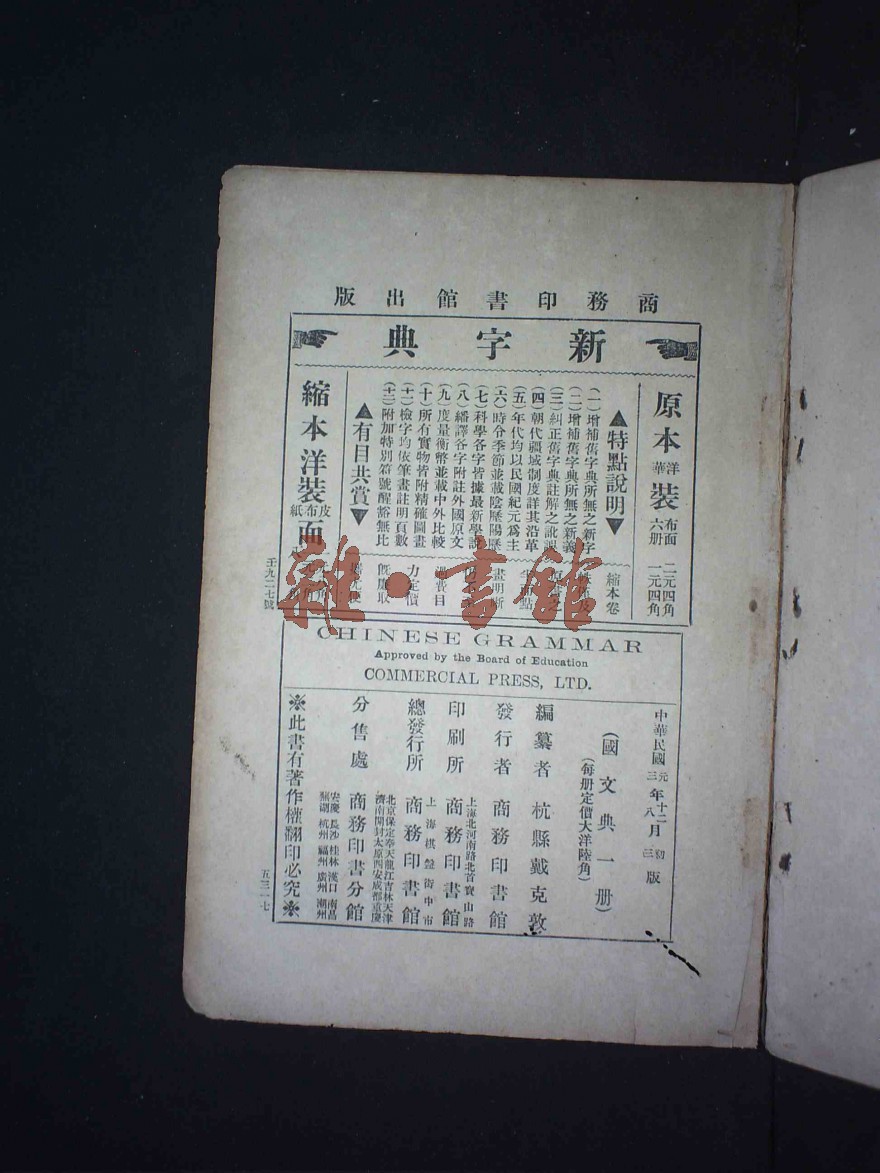 商務印書館出版
新字典
原本洋華裝布面六册 二元四角 一元四角
▲特點說明▼
(一)增補舊字典所無之新字
(二)增補舊字典所無之新義
(三)糾正舊字典註解之訛誤
(四)朝代疆域制度詳其沿革
(五)年代均以民國紀元爲主
(六)時令季節並載陰歷陽歷
(七)科學各字皆據最新學說
(八)繙譯各字附註外國原文
(九)度量衡幣並載中外比較
(十)所有實物皆附精確圖畫
(十一)檢字均依筆畫註明頁數
(十二)附加特別符號醒豁無比
縮本卷
畫明晰
費目
力定價
旣廉取
▲有目共賞▼
縮本洋裝皮布紙面
壬九二七號
雜·書館
CHINESE GRAMMAR
Approved by the Board of Education
COMMERCIAL PRESS, LTD.
中華民國元年十二月初版
三年八月三版
(國文典一册)
(每册定價大洋陸角)
編纂者 杭縣戴克敦
發行者 商務印書館
上海北河南路北首寶山路
印刷所 商務印書館
上海棋盤街中市
總發行所 商務印書館
北京保定奉天龍江吉林天津
濟南開封太原西安成都重慶
分售處 商務印書分館
安慶長沙桂林漢口南昌
蕪湖杭州福州廣州潮州
※此書有著作權翻印必究※
五三一七